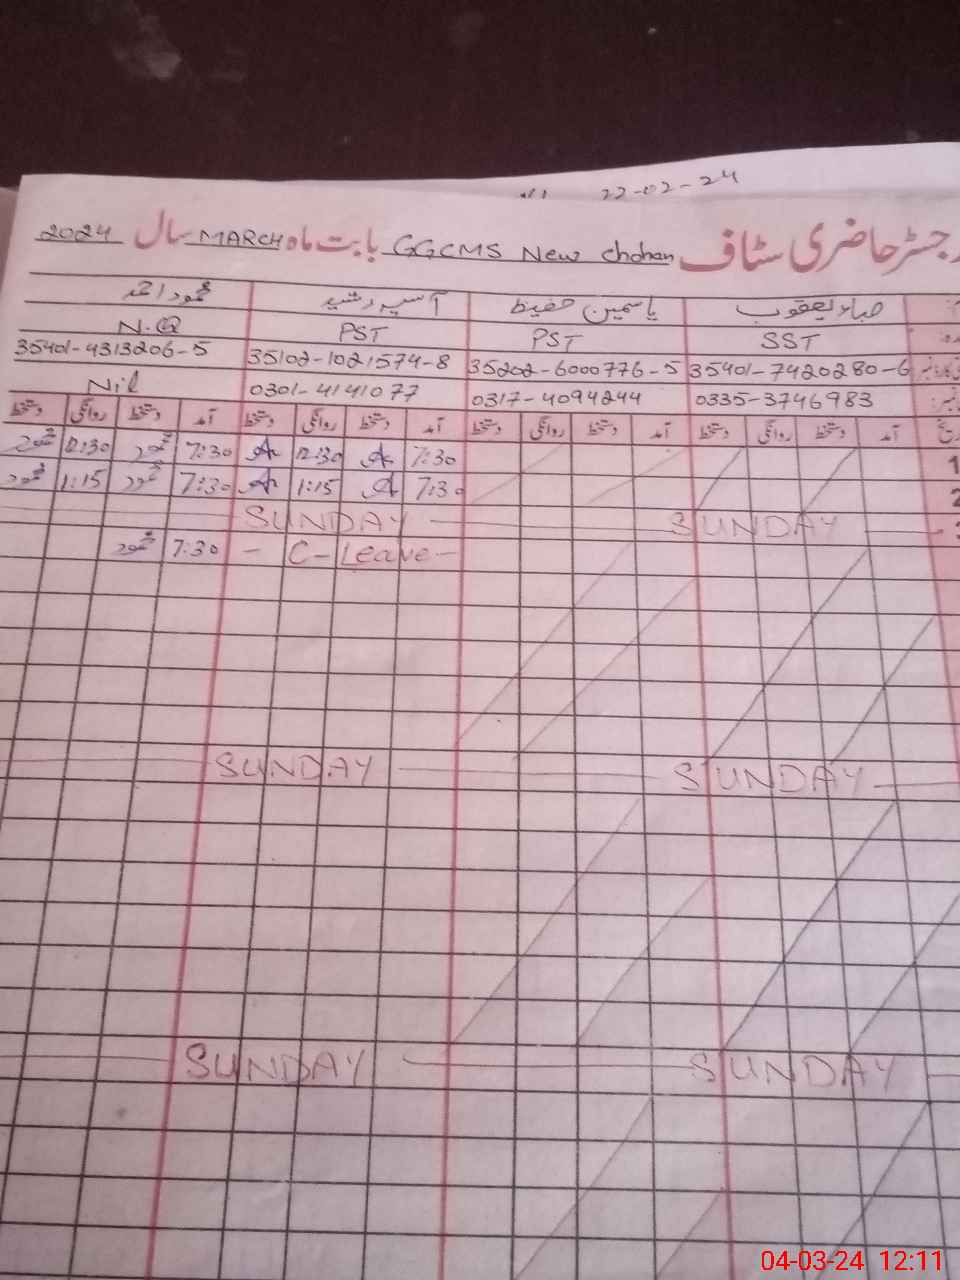 22-02-24
رجسٹر حاضری سٹاف GGCMS New Chohan بابت ماہ MARCH سال 2024
صباء یعقوب یاسمین حفیظ آسیہ رشید محمود احمد
SST PST PST N.Q
35401-7420280-6 35202-6000776-5 35102-1021574-8 35401-4313206-5
0335-3746983 0317-4094244 0301-4141077 Nil
آمد دستخط روانگی دستخط آمد دستخط روانگی دستخط آمد دستخط روانگی دستخط آمد دستخط روانگی دستخط
1 7:30 12:30 7:30 محمود 12:30 محمود
2 7:30 1:15 7:30 محمود 1:15 محمود
3 SUNDAY SUNDAY
C-Leave 7:30 محمود
SUNDAY SUNDAY
SUNDAY SUNDAY
04-03-24 12:11